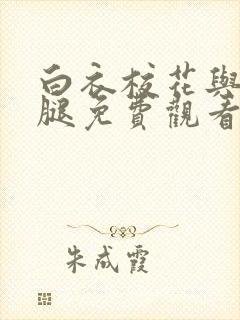 白衣校花與
腿免費觀看
朱成霞